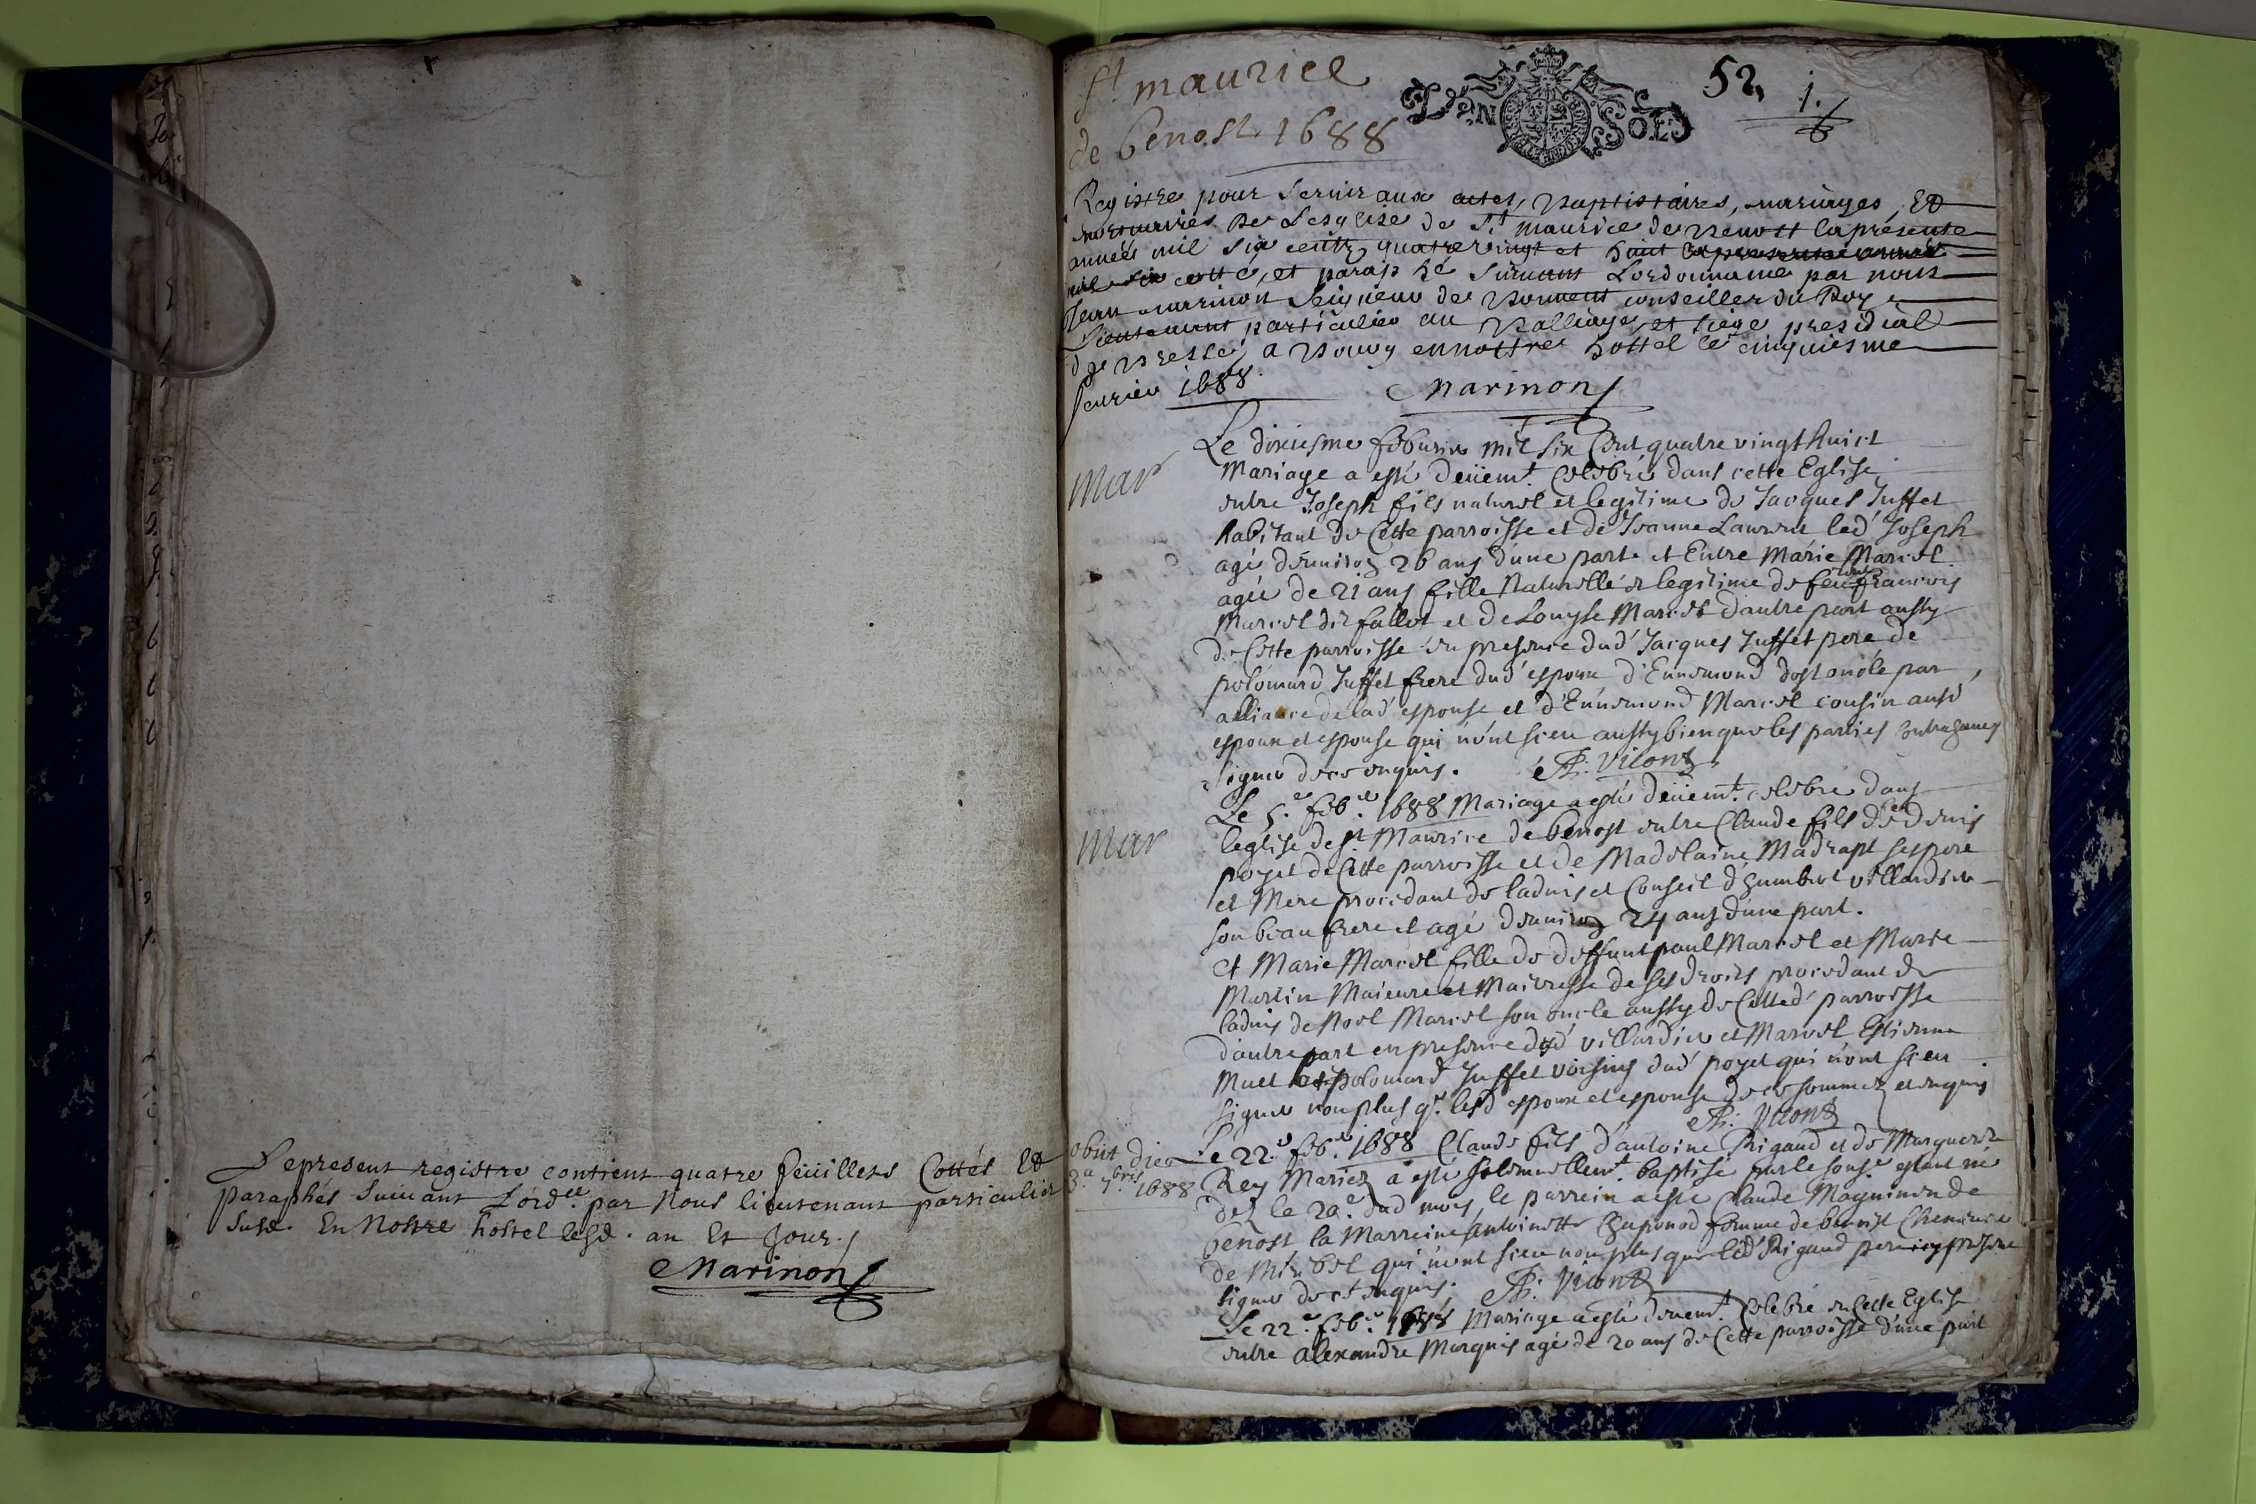 Le present registre contient quatre feüillets Cottés Et
paraphés suivant Lord.ce par Nous lieutenant particulier
susd. En Nostre hostel lesd. an Et Jour.
Marinon
St maurice
de benost 1688
52, 1.
UN SOL
Registre pour servir aux actes, Baptistaires, mariages, Et
mortuaires de Lesglise de St maurice de Benost la présente
année mil six centz quatre vingt et huit la presente année
mil six cotté, et paraphé suivant Lordonnance par nous
Jean marinon Seigneur de conseiller du Roy
Lieutenant particulier au Balliage et siege presidial
de Bresse, a Bourg en nostre hostel le cinquiesme
fevrier 1688.
Marinon
Mar
Le dixiesme feburier mil six Cent quatre vingt huict
Mariage a esté deüem.t Celebré dans cette Eglise
entre Joseph fils naturel et legitime de Jacques Juffet
habitant de Cette parroisse et de Jeanne Laurent led' Joseph
agé d'environ 26 ans d'une part et Entre Marie Marcel
agée de 21 ans fille Naturelle et legitime de feu françois
Marcel dit fallet et de Louyse Marcel d'autre part aussy
de Cette parroisse en presence dud' Jacques Juffet pere de
polomard Juffet frere dud' espoux d'Ennemond oncle par
alliance de lad' espouse et d'Ennemond Marcel cousin ausd'
espoux et espouse qui n'ont sceu aussy bien que les parties
signer de ce enquis. Vicont
Mar
Le 5.e feb.er 1688 Mariage a esté deüem.t celebré dans
leglise de St Maurice de benost entre Claude fils de denis
poyet de Cette parroisse et de Madelaine Madrapt ses pere
et Mere procedant de ladvis et Conseil d'humbert villardier
son beau frere et agé d'environ 24 ans d'une part.
et Marie Marcel fille de deffunt paul Marcel et Marie
Martin Maieure et Maitresse de ses droits procedant de
ladvis de Noel Marcel son oncle aussy de Cetted' parroisse
d'autre part en presence dud' villardier et Marcel Estienne
Muet et polomard Juffet voisins dud' poyet qui n'ont sceu
signer non plus q.e lesd' espoux et espouse de ce sommez et enquis
Vicont
obiit die
3.a 7.bris 1688
Le 22.e feb.er 1688 Claude fils d'antoine Rigaud et de Marguerite
Rey Mariez a esté solemnellem.t baptisé par le sousf.e estant né
dez le 20.e dud' mois le parrein a esté Claude Magnin de
benost la Marreine antoinette femme de benoist
de Miribel qui n'ont sceu non plus que led' Rigaud pere present
signer de ce enquis. Vicont
Le 22.e feb.er 1688 Mariage a esté deuem.t Celebré en Cette Eglise
entre alexandre Marquis agé de 20 ans de Cette parroisse d'une part